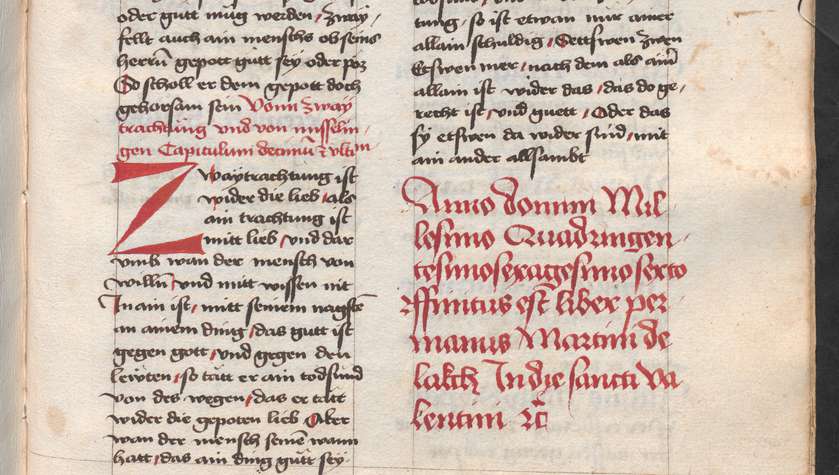 oder gutt mug werden / Zway
fellt auch ain menschs ob seins
herrn gepott gutt sey oder poz
So scholl er dem gepott doch
gehorsam sein Vonn zway
trachtung vnd von misselin
gen Capitulum decimũ &
Zwaytrachtung ist
wider die lieb / als
ain trachtung ist
mitt lieb / vnd dar
vmb wan der mensch von
willñ / vnd mitt wissen nit
In ain ist / mitt seinem nagstẽ
an ainem ding / das gutt ist
gegen gott / vnd gegen den
lewten / so tátt er ain todsund
von des wegen / das er tátt
wider die gepoten lieb Aber
wan der mensch seinẽ wann
hatt / das ain ding gutt sey
tung / so ist etwan nur ainer
allain schuldig / Ettswen zwen
Etswen mer / nach dem als ainr
allain ist wider das / das do ge
recht ist / vnd guett / Oder das
sy etswen da wider sind / mit
ain ander allsambt
Anno domini Mil
lesimo Quadringen
tesimosexagesimo sexto
ffinitus est liber per
manus Martini de
In die sancti Va
lentini &c